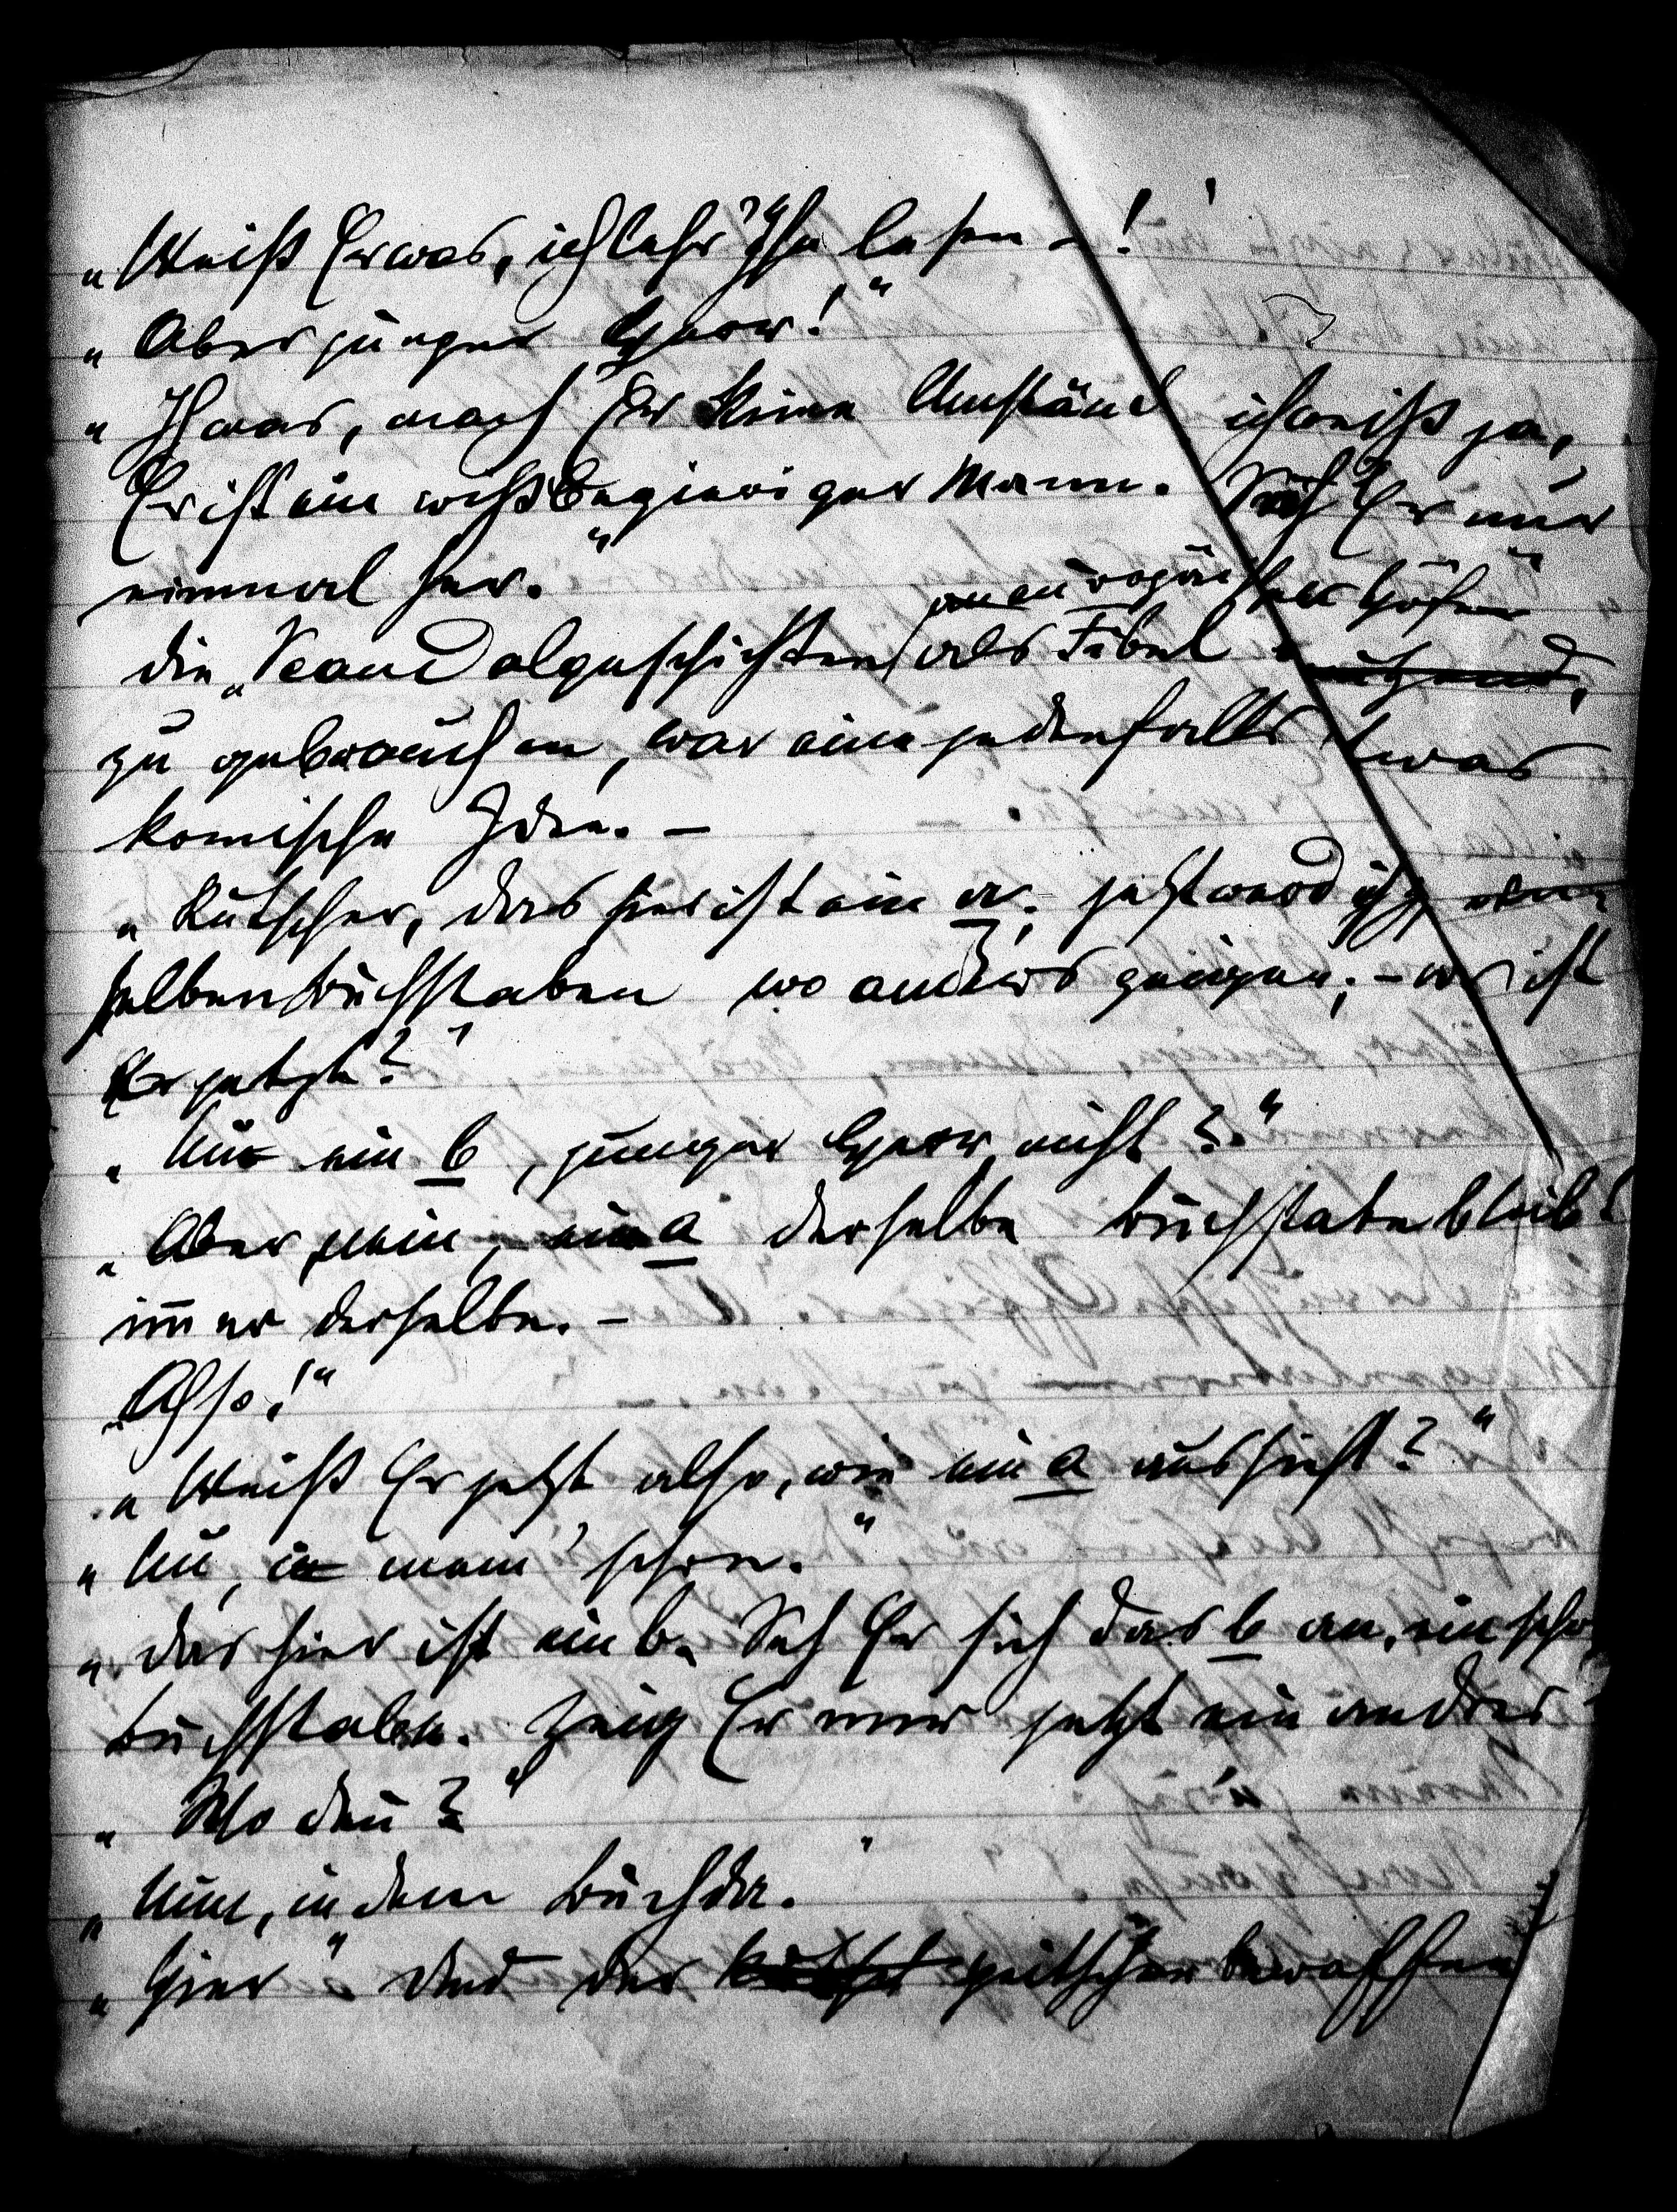 „Weiß Er was, ich lehr' Ihn lesen –!
„Aber junger Herr!“
„I was, mach' Er keine Umständ ich weiß ja,
Er ist ein wißbegieriger Mann. Seh' Er nur
einmal her.“
an europäischen Höfen“
die „Scandalgeschichten als Fibel
zu gebrauchen, war eine jedenfalls etwas
komische Idee. –
„Kutscher, das hier ist ein a; jetzt werd ich, den
selben Buchstaben wo anders zeigen; – was ist
Er jetzt?“
„Nu ein b, junger Herr, nicht?“
„Aber nein, ein a derselbe Buchstabe bleibt
immer derselbe. –
„Also!“
„Weiß Er jetzt also, wie ein a aussieht?“
„Nu, in mein' schon.“
„das hier ist ein b. Seh Er sich das b an, ein scho
Buchstabe. Zeig Er mir jetzt ein andres
„Wo denn?“
„Nun, in dem Buch da.“
„Hier“ Und der peitschenbewaffne